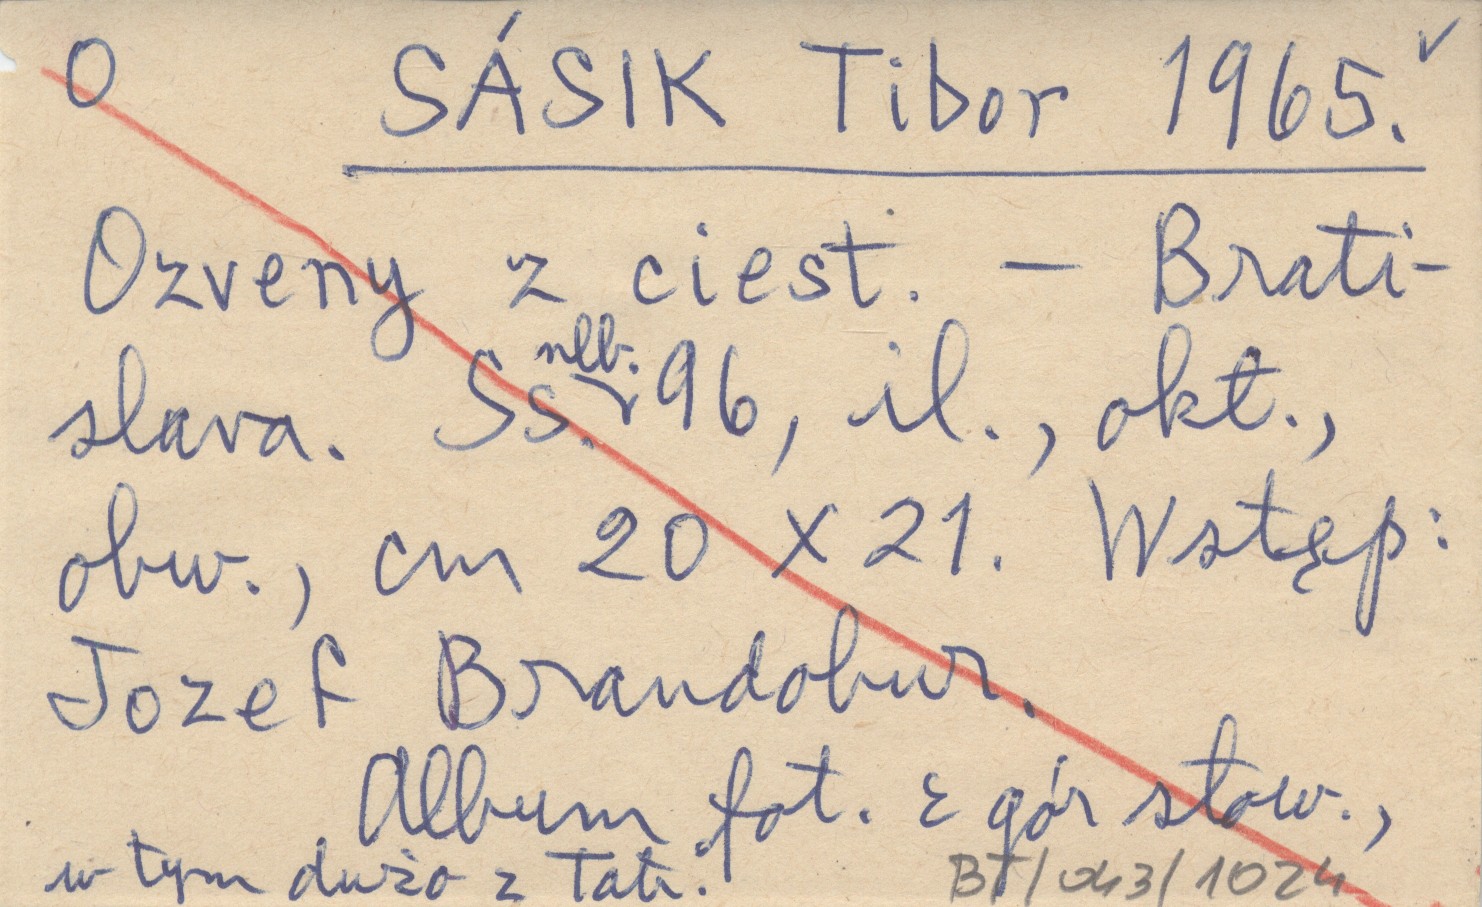 O SÁSIK Tibor 1965. ✓
Ozveny z ciest. – Brati-
slava. Ss. nlb. 96, il., okł.,
obw., cm 20 x 21. Wstęp:
Jozef Brandobur.
Album fot. z gór słow.,
w tym dużo z Tatr.
BT/043/1024